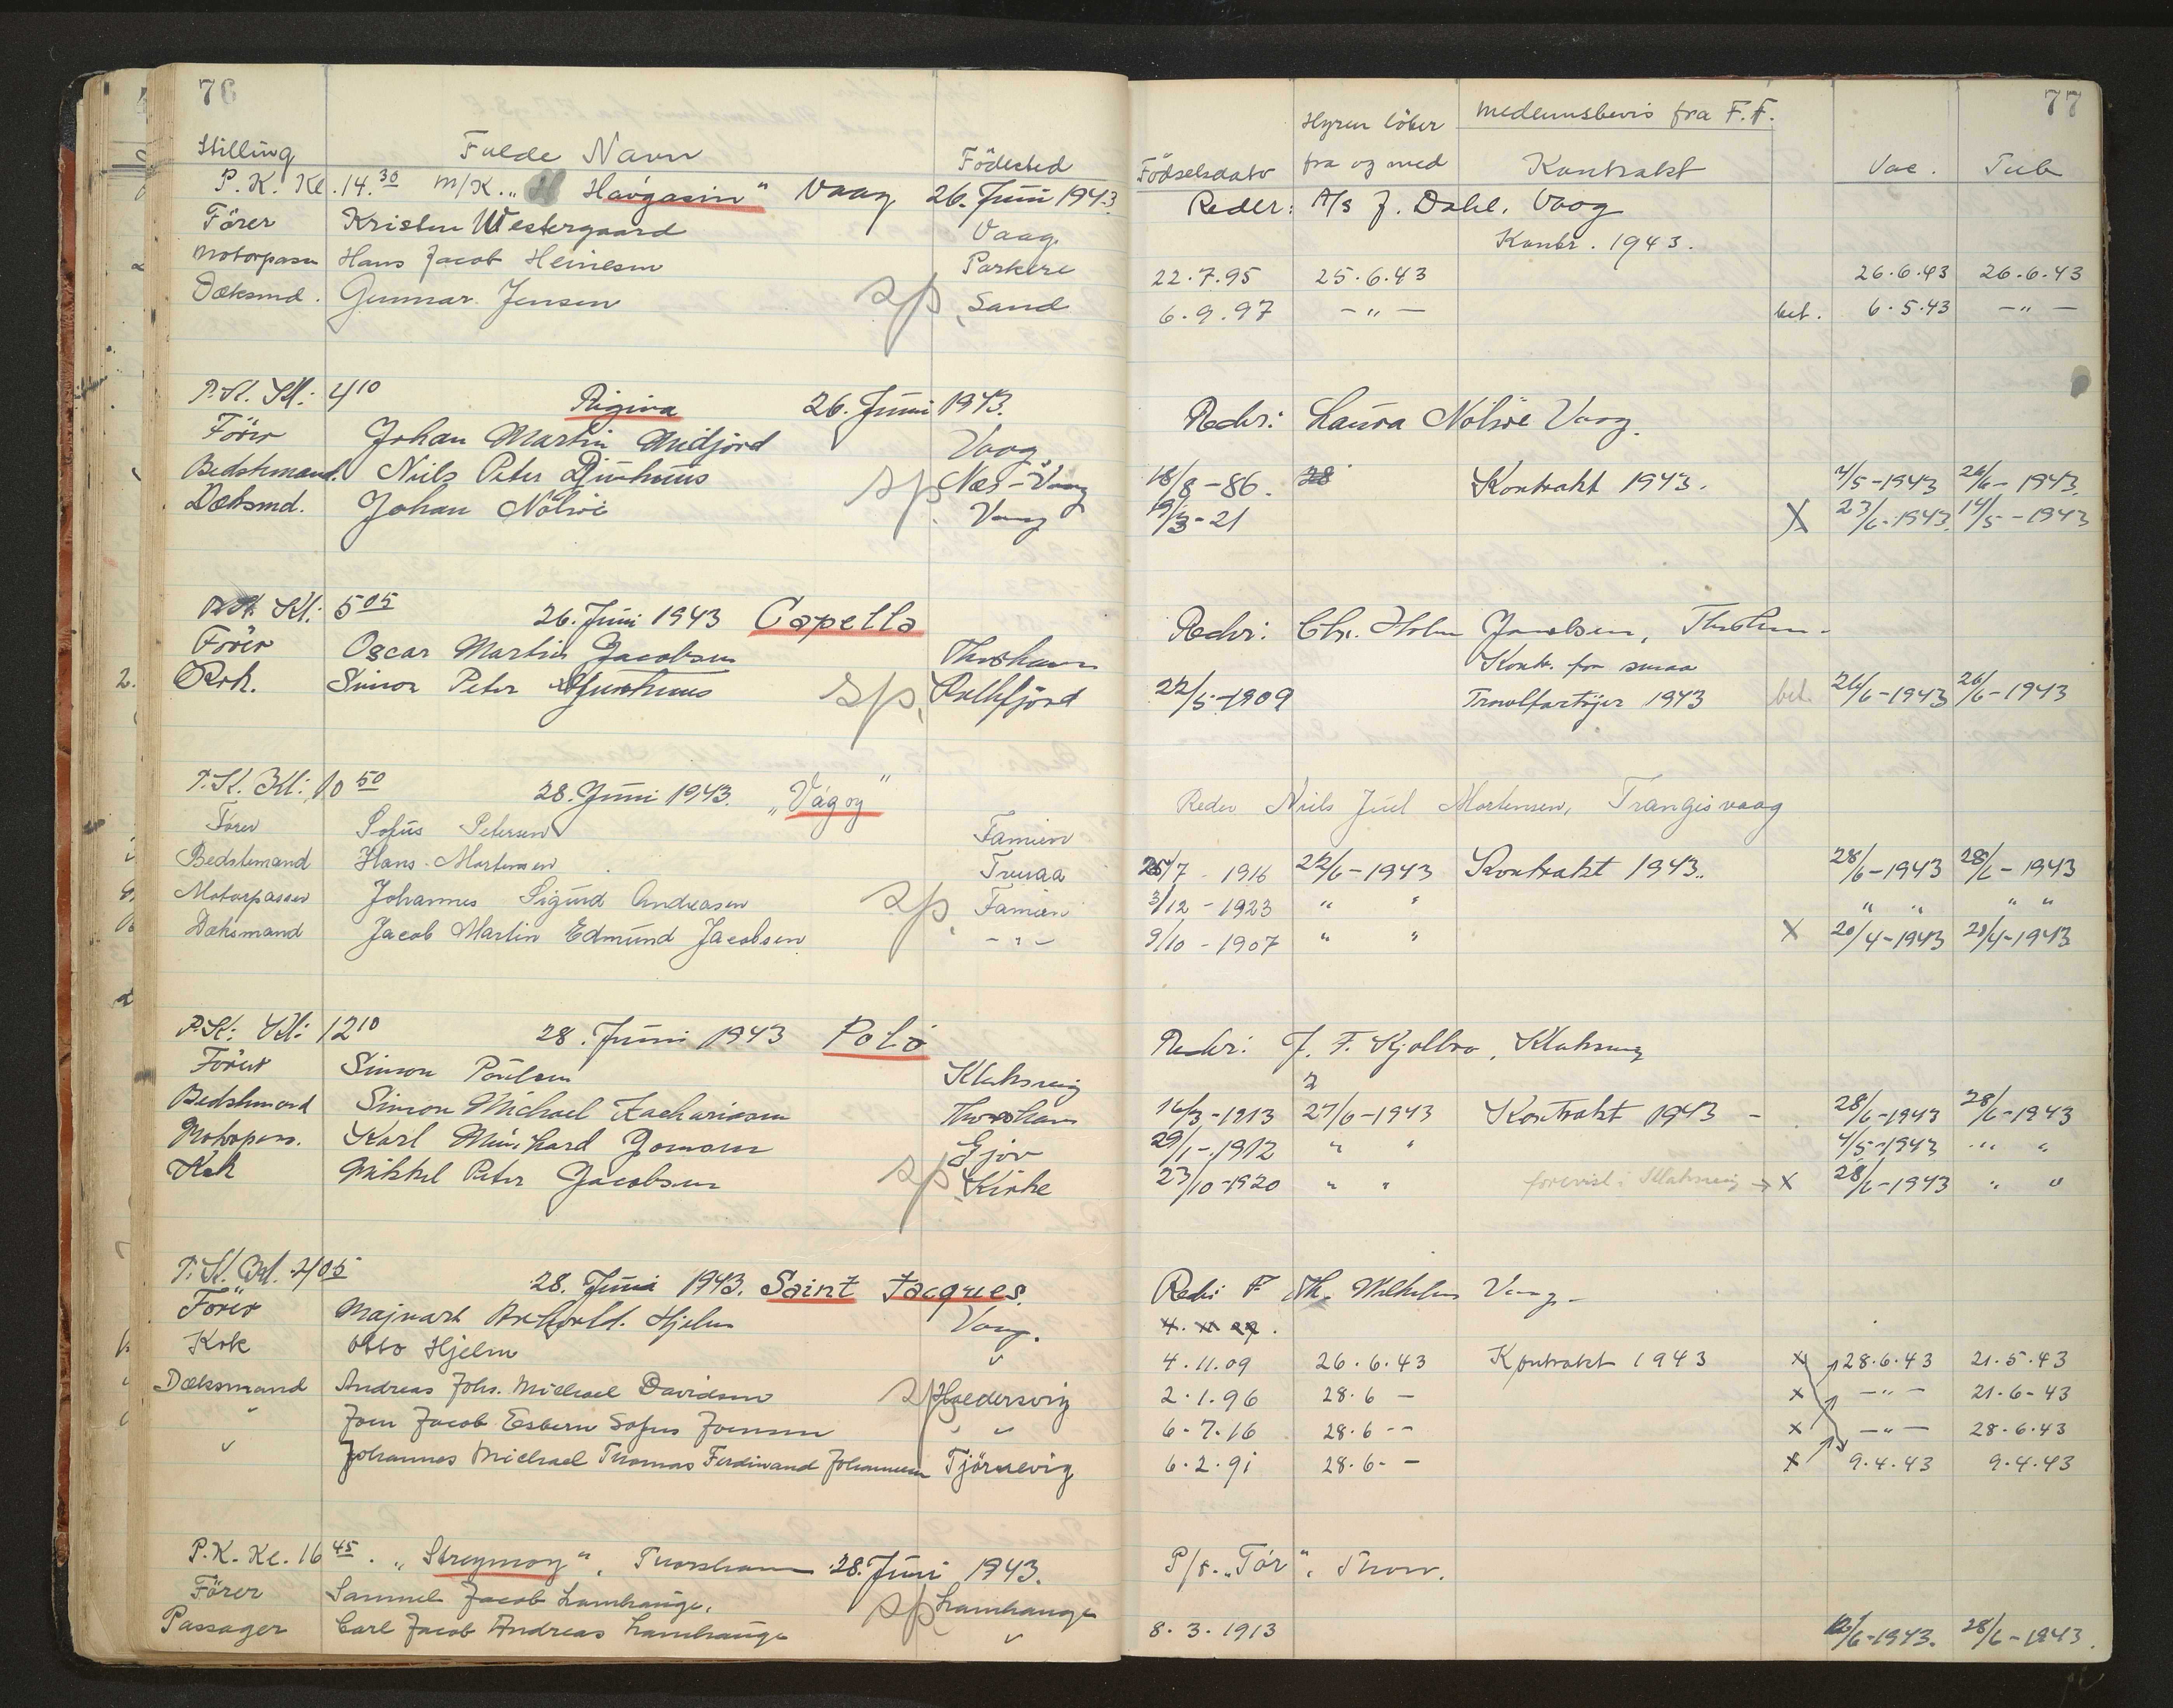 76
77
Stilling Fulde Navn Födested Födselsdato Hyren löber fra og med Medlemsbevis fra F.F. Kontrakt Vac. Tub
P.K. Kl. 14.30 M/K. „Havgasin" Vaag 26. Juni 1943 Reder: A/s J. Dahl. Vaag
Förer Kristen Westergaard Vaag Kontr. 1943.
Motorpasser Hans Jacob Heinesen Porkere 22.7.95 25.6.43 26.6.43 26.6.43
Dæksmd. Gunnar Jensen Sand 6.9.97 -"- bet. 6.5.43 -"-
P.K. Kl: 410 Rigina 26. Juni 1943. Reder: Laura Nolsöe Vaag.
Förer Johan Martin Midjord Vaag
Bedstemand. Niels Peter Djurhuus Næs-Vaag 18/8-86. 28 Kontrakt 1943. 4/5-1943 26/6-1943.
Dæksmd. Johan Nolsöe Vaag 19/3-21 X 23/6-1943. 14/5-1943
P.K. Kl: 505 26. Juni 1943 Capella Reder: Chr. Holm Jacobsen,
Förer Oscar Martin Jacobsen Thorshavn Kontr. for smaa
Kok. Simon Peter Djurhuus 22/5-1909 Trawlfartöjer 1943 bet. 26/6-1943 26/6-1943
P.K. Kl: 1050 28. Juni 1943. „Vágoy" Reder Niels Juel Mortensen, Trangisvaag
Förer Sofus Petersen Famien
Bedstemand Hans Mortensen Tveraa 25/7-1916 22/6-1943 Kontrakt 1943. 28/6-1943 28/6-1943
Motorpasser Johannes Sigurd Andreasen Famien 3/12-1923 " " " " " "
Dæksmand Jacob Martin Edmund Jacobsen -"- 9/10-1907 " " X 20/4-1943 20/4-1943
P.K: Kl: 1210 28. Juni 1943 Polo Reder: J. F. Kjölbro, Klaksvig
Förer Simon Poulsen Klaksvig
Bedstemand Simon Michael Zachariasen Thorshavn 16/3-1913 27/6-1943 Kontrakt 1943 - 28/6-1943 28/6-1943
Motorpass. Karl Joensen Gjov 29/1-1912 " " 4/5-1943 " "
Kok Mikkel Peter Jacobsen Kirke 23/10-1920 " " forevist i Klaksvig → x 28/6-1943 " "
P.K. Kl. 405 28. Juni 1943. Saint Jacques. Reder F Th. Wilhelm Vaag-
Förer Majnart Hjelm Vaag.
Kok Otto Hjelm " 4.11.09 26.6.43 Kontrakt 1943 x 28.6.43 21.5.43
Dæksmand Andreas Johs. Michael Davidsen Haldersvig 2.1.96 28.6 - x -"- 21.6-43
" Joen Jacob Esbern Sofus Joensen " 6-7.16 28.6 -- x -"- 28.6.43
" Johannes Michael Thomas Ferdinand Johannesen Tjörnevig 6.2.91 28.6. - x 9.4.43 9.4.43
P.K. Kl. 16 45. „Streymoy", Thorshavn 28. Juni 1943. P/f. „Tór", Thorv.
Förer Samuel Jacob Lamhauge. Lamhauge
Passager Carl Jacob Andreas Lamhauge " 8.3.1913 28/6-1943.